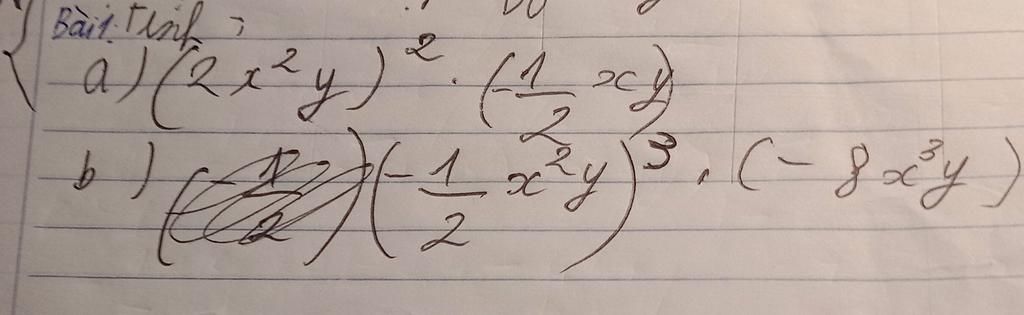 Bài 1: Tính :
a) (2x²y)² . (-1/2 xy)
b) (-1/2 x²y)³ . (-8x³y)